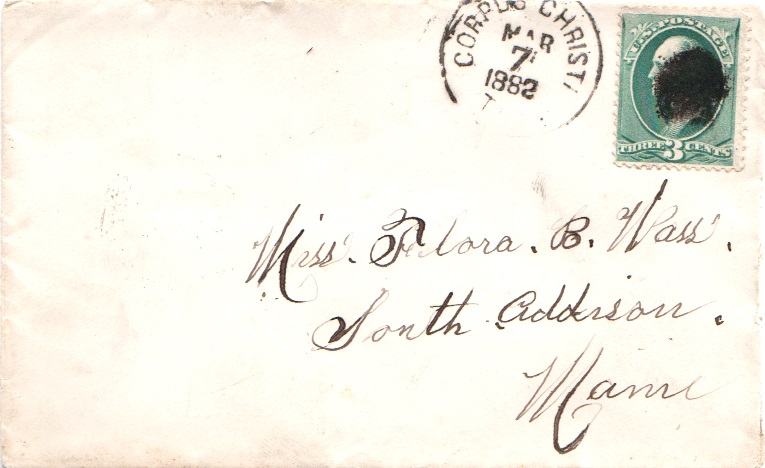 CORPUS CHRISTI
MAR
7
1882
T
U.S. POSTAGE
THREE 3 CENTS
Miss. Flora. B. Wass.
South Addison.
Maine